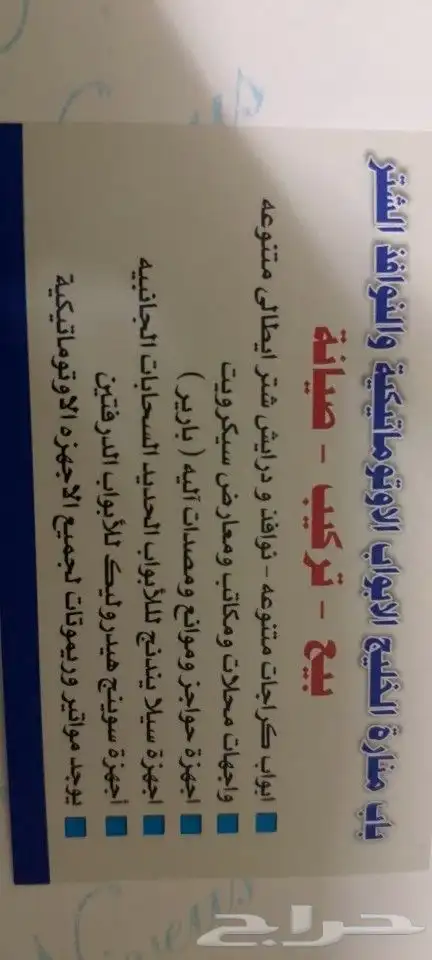 باب منارة الخليج الابواب الاوتوماتيكية والنوافذ الشتر
بيع - تركيب - صيانة
ابواب كراجات متنوعه - نوافذ و درايش شتر ايطالى متنوعه
واجهات محلات ومكاتب ومعارض سيكرويت
اجهزة حواجز وموانع ومصدات آليه ( بارير )
اجهزة سيلا يندنج للأبواب الحديد السحابات الجانبيه
أجهزة سوينج هيدروليك للأبواب الدرفتين
يوجد مواتير وريموتات لجميع الاجهزه الاوتوماتيكية
حراج